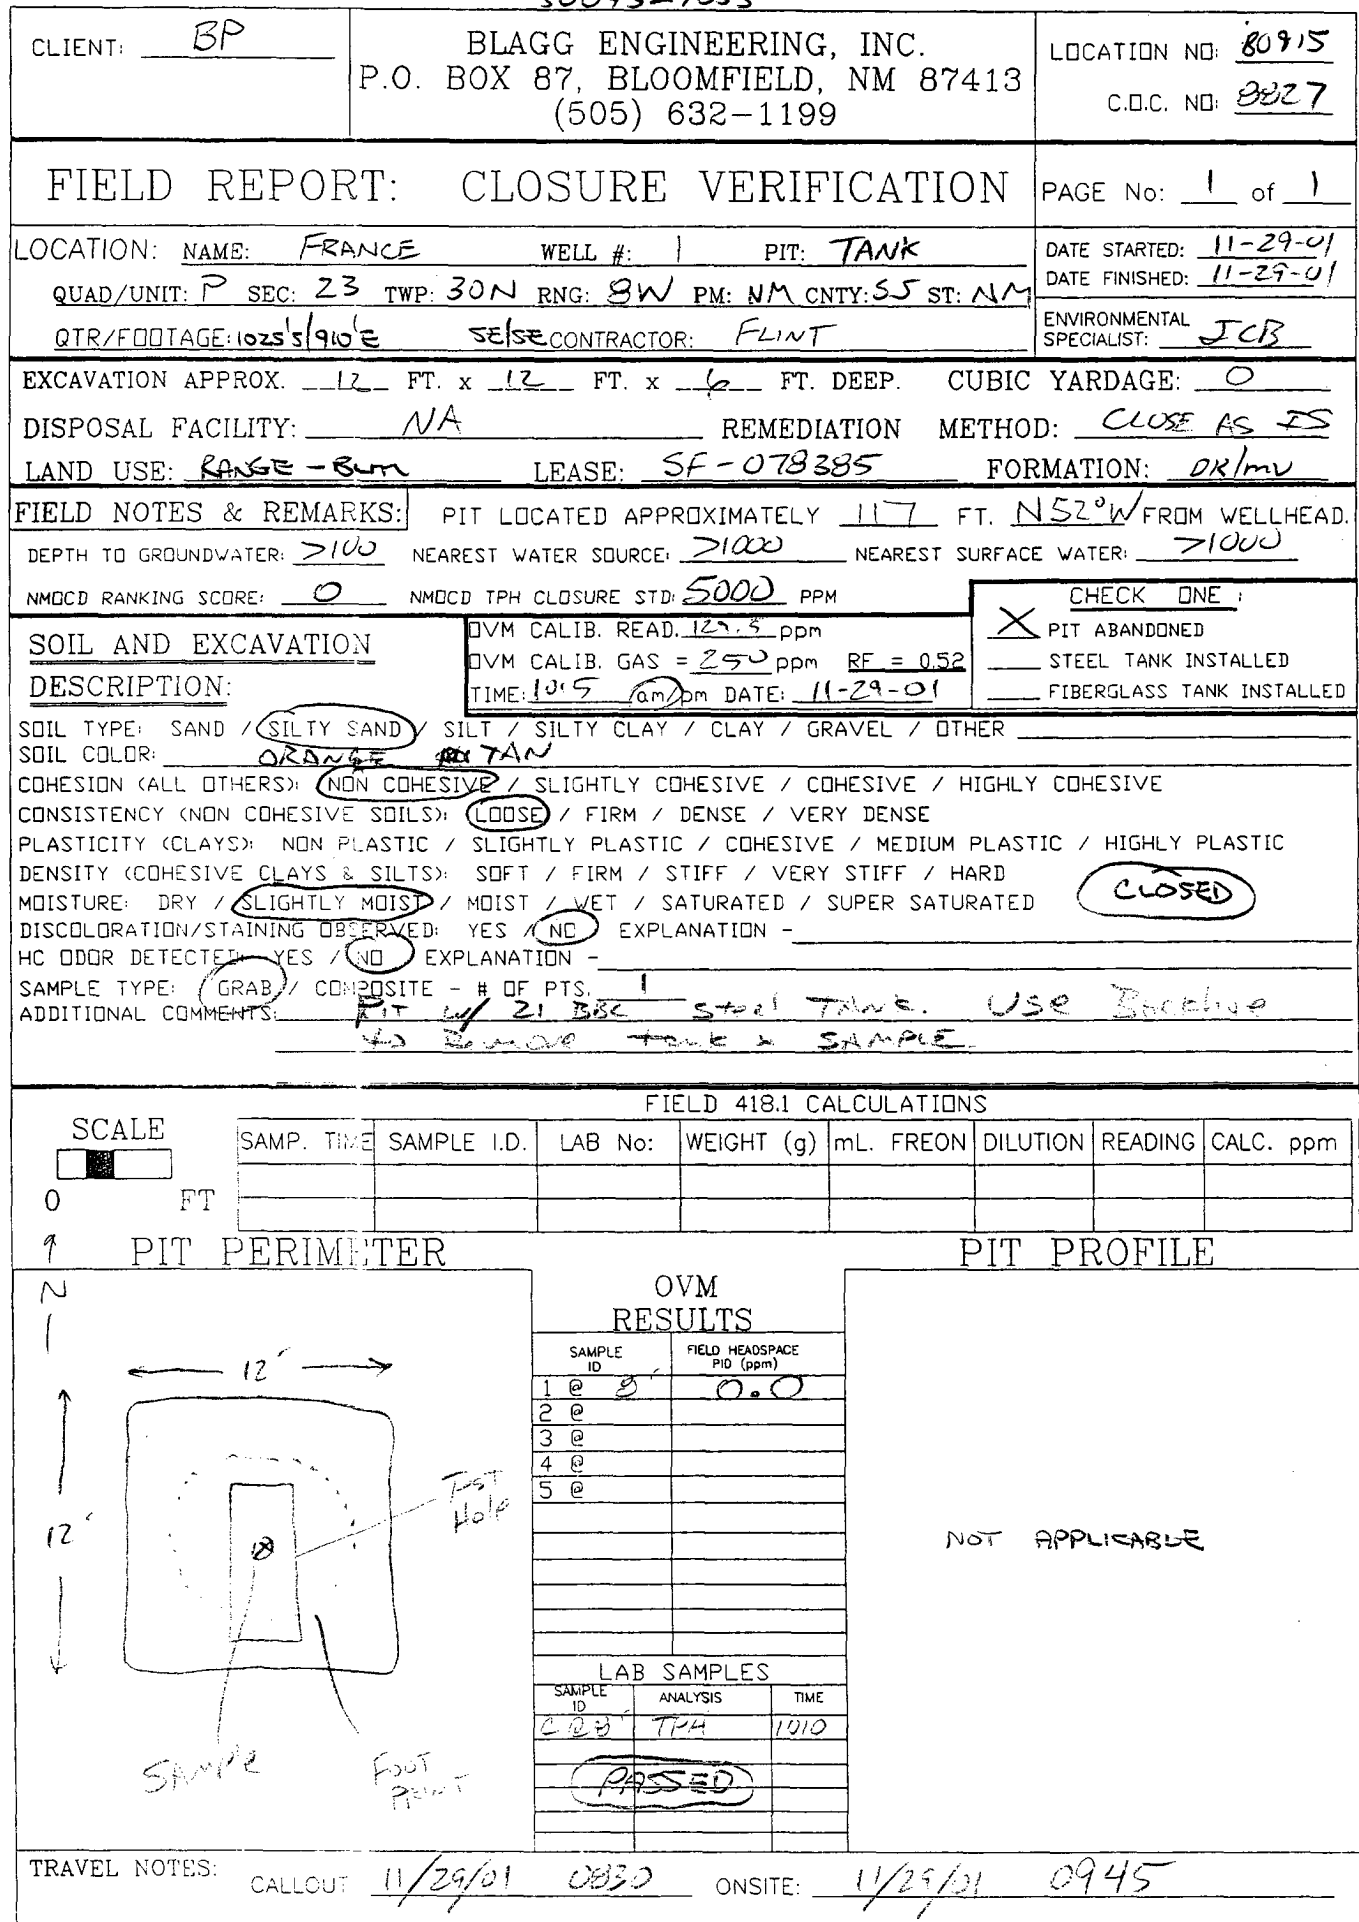 CLIENT: BP
BLAGG ENGINEERING, INC.
P.O. BOX 87, BLOOMFIELD, NM 87413
(505) 632-1199
LOCATION NO: 80915
C.O.C. NO: 8827
FIELD REPORT: CLOSURE VERIFICATION
PAGE No: 1 of 1
LOCATION: NAME: FRANCE WELL #: 1 PIT: TANK
QUAD/UNIT: P SEC: 23 TWP: 30N RNG: 8W PM: NM CNTY: SJ ST: NM
QTR/FOOTAGE: 1025'S/910'E SE/SE CONTRACTOR: FLINT
DATE STARTED: 11-29-01
DATE FINISHED: 11-29-01
ENVIRONMENTAL
SPECIALIST: JCB
EXCAVATION APPROX. 12 FT. x 12 FT. x 6 FT. DEEP. CUBIC YARDAGE: 0
DISPOSAL FACILITY: NA REMEDIATION METHOD: CLOSE AS IS
LAND USE: RANGE - BLM LEASE: SF-078385 FORMATION: DK/MV
FIELD NOTES & REMARKS: PIT LOCATED APPROXIMATELY 117 FT. N52°W FROM WELLHEAD.
DEPTH TO GROUNDWATER: >100 NEAREST WATER SOURCE: >1000 NEAREST SURFACE WATER: >1000
NMOCD RANKING SCORE: 0 NMOCD TPH CLOSURE STD: 5000 PPM
CHECK ONE :
X PIT ABANDONED
STEEL TANK INSTALLED
FIBERGLASS TANK INSTALLED
SOIL AND EXCAVATION
DESCRIPTION:
OVM CALIB. READ. 129.5 ppm
OVM CALIB. GAS = 250 ppm RF = 0.52
TIME: 1015 am/pm DATE: 11-29-01
SOIL TYPE: SAND / SILTY SAND / SILT / SILTY CLAY / CLAY / GRAVEL / OTHER
SOIL COLOR: ORANGE TAN
COHESION (ALL OTHERS): NON COHESIVE / SLIGHTLY COHESIVE / COHESIVE / HIGHLY COHESIVE
CONSISTENCY (NON COHESIVE SOILS): LOOSE / FIRM / DENSE / VERY DENSE
PLASTICITY (CLAYS): NON PLASTIC / SLIGHTLY PLASTIC / COHESIVE / MEDIUM PLASTIC / HIGHLY PLASTIC
DENSITY (COHESIVE CLAYS & SILTS): SOFT / FIRM / STIFF / VERY STIFF / HARD
MOISTURE: DRY / SLIGHTLY MOIST / MOIST / WET / SATURATED / SUPER SATURATED
CLOSED
DISCOLORATION/STAINING OBSERVED: YES / NO EXPLANATION -
HC ODOR DETECTED: YES / NO EXPLANATION -
SAMPLE TYPE: GRAB / COMPOSITE - # OF PTS. 1
ADDITIONAL COMMENTS: PIT W/ 21 BBL Steel TANK. USE Backhoe
to Remove tank & SAMPLE.
FIELD 418.1 CALCULATIONS
SCALE
0 FT
SAMP. TIME SAMPLE I.D. LAB No: WEIGHT (g) mL. FREON DILUTION READING CALC. ppm
PIT PERIMETER
PIT PROFILE
N
12'
12'
TEST
Hole
SAMPLE
FOOT
PRINT
OVM
RESULTS
SAMPLE
ID
FIELD HEADSPACE
PID (ppm)
1 @ 8' 0.0
2 @
3 @
4 @
5 @
NOT APPLICABLE
LAB SAMPLES
SAMPLE
ID
ANALYSIS TIME
C@8' TPH 1010
PASSED
TRAVEL NOTES: CALLOUT: 11/29/01 0830 ONSITE: 11/29/01 0945